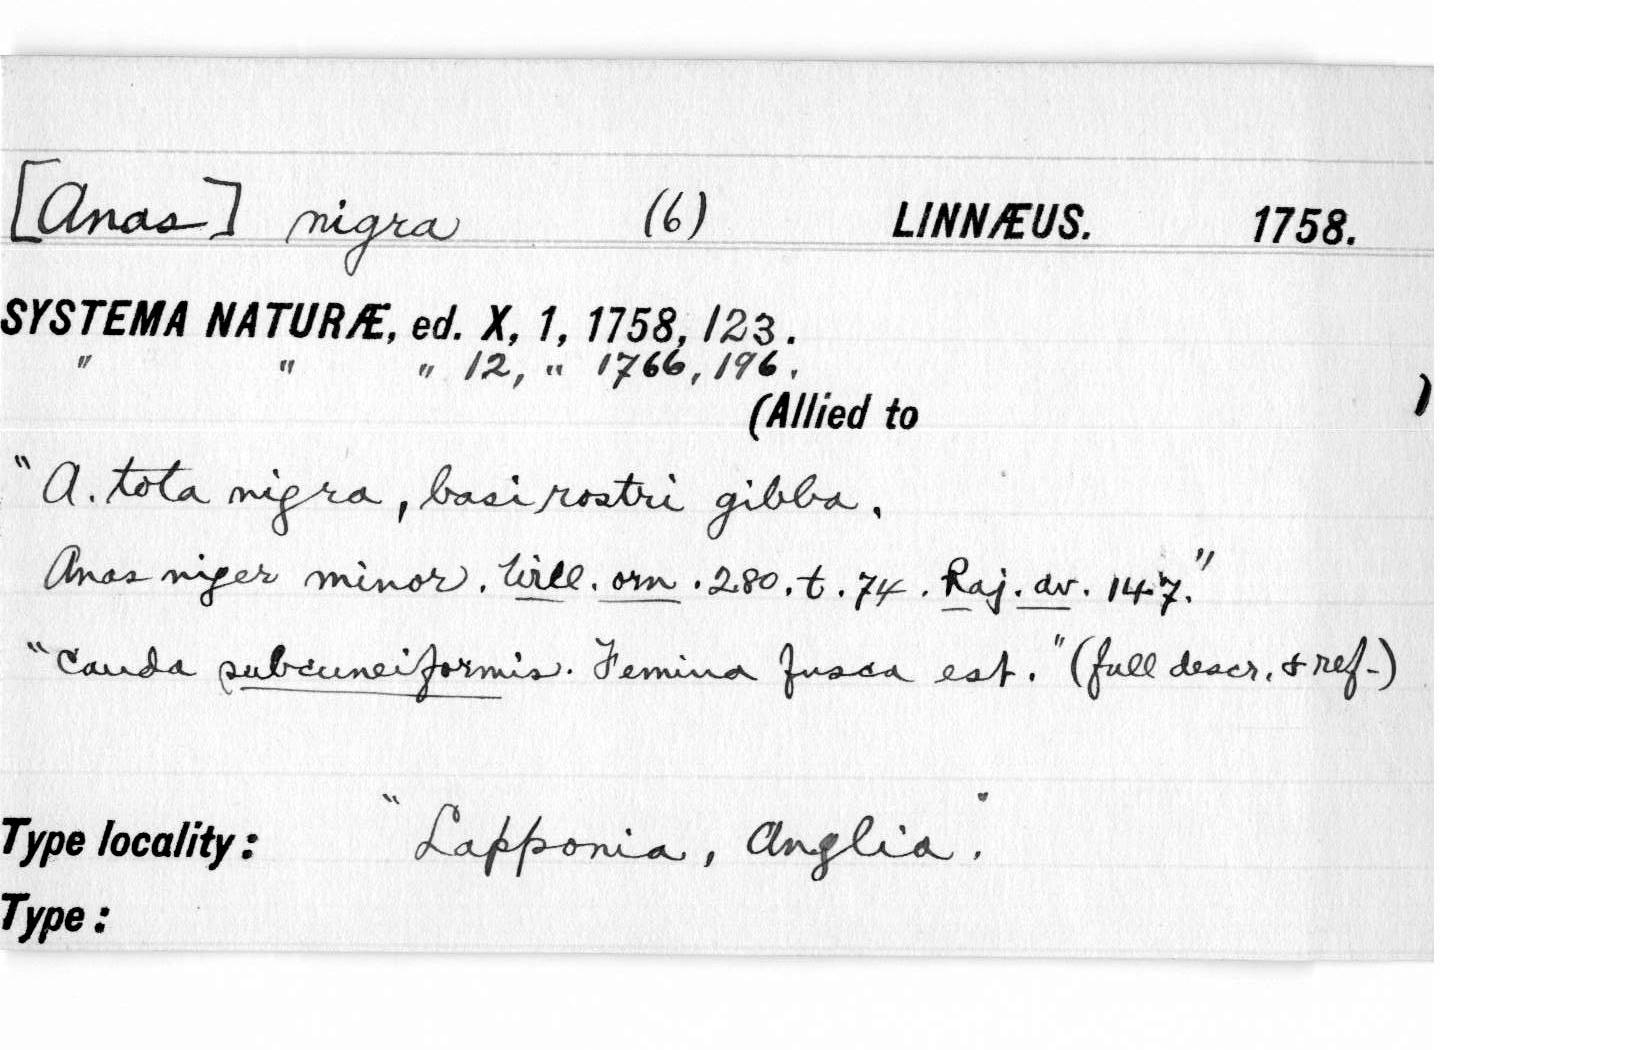 [Anas] nigra (6) LINNÆUS. 1758.
SYSTEMA NATURÆ, ed. X, 1, 1758, 123.
" " " 12, " 1766, 196.
(Allied to )
"A. tota nigra, basi rostri gibba.
Anas niger minor. Will. orn. 280. t. 74. Raj. av. 147."
"Cauda subcuneiformis. Femina fusca est." (full descr. & ref-)
Type locality: "Lapponia, Anglia."
Type: